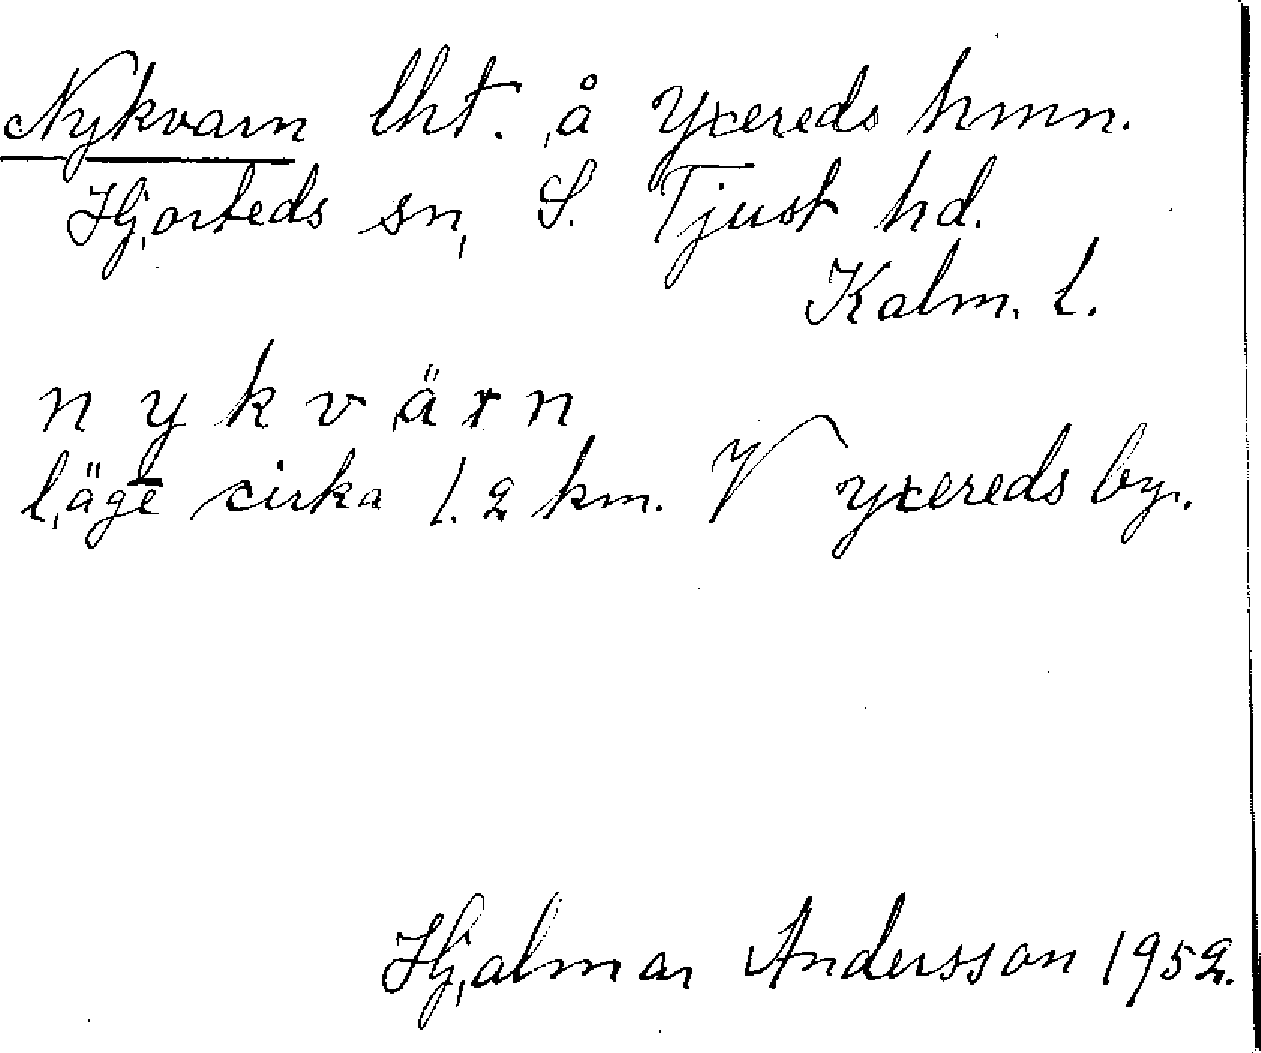 Nykvarn lht. å Yxereds hmn.
Hjorteds sn, S. Tjust hd.
Kalm. l.
nykvärn
läge cirka 1.2 km. V yxereds by.
Hjalmar Andersson 1952.